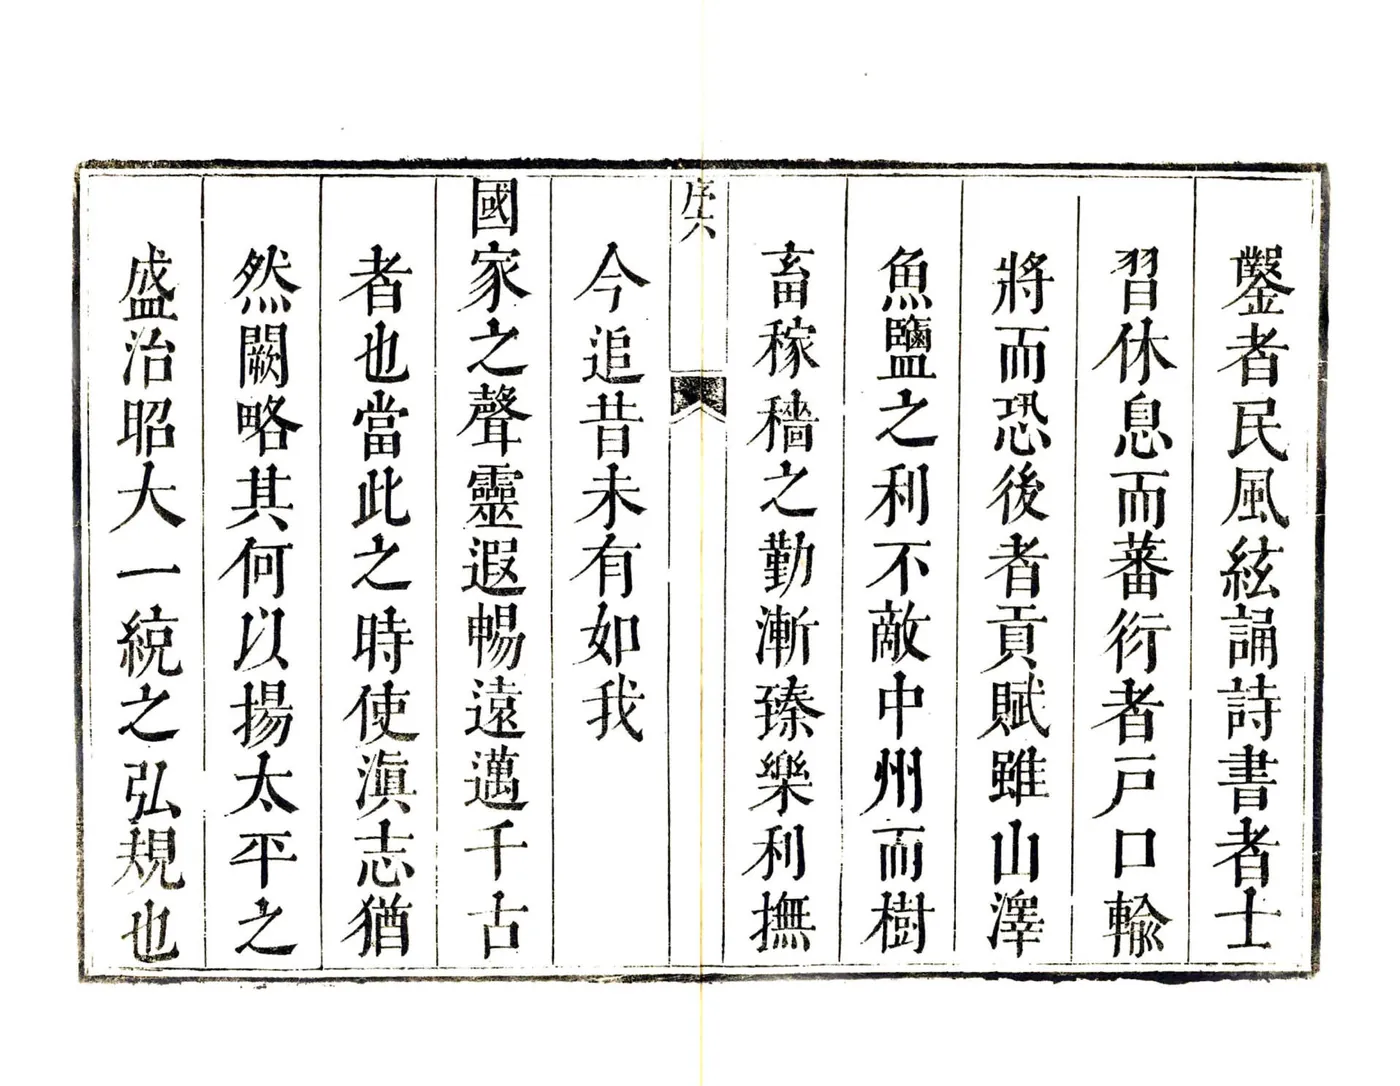 鑿者民風絃誦詩書者士
習休息而蕃衍者戸口輸
將而恐後者貢賦雖山澤
魚鹽之利不敵中州而樹
畜稼穡之勤漸臻樂利撫
序六
今追昔未有如我
國家之聲靈遐暢遠邁千古
者也當此之時使滇志猶
然闕略其何以揚太平之
盛治昭大一統之弘規也